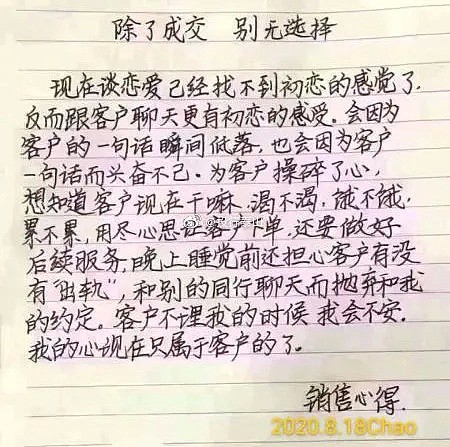 除了成交 别无选择
现在谈恋爱已经找不到初恋的感觉了.
反而跟客户聊天更有初恋的感受。会因为
客户的一句话瞬间低落,也会因为客户
一句话而兴奋不已。为客户操碎了心,
想知道客户现在干嘛,渴不渴,饿不饿,
累不累,用尽心思让客户下单,还要做好
后续服务,晚上睡觉前还担心客户有没
有“出轨”,和别的同行聊天而抛弃和我
的约定。客户不理我的时候 我会不安.
我的心现在只属于客户的了。
销售心得.
2020.8.18Chao